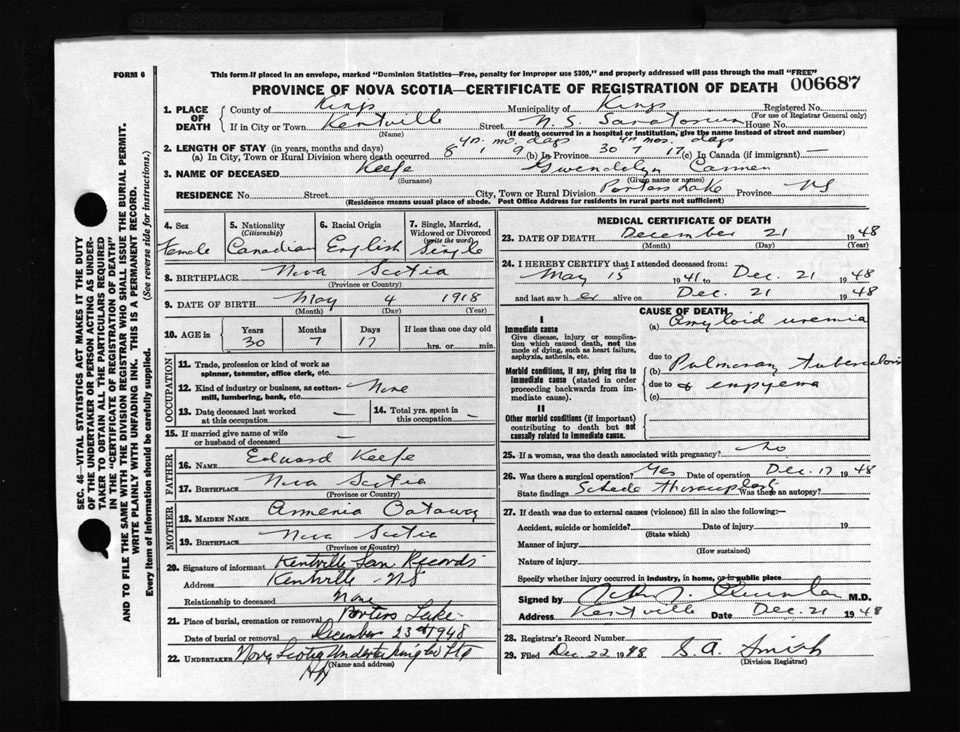 FORM 6
This form if placed in an envelope, marked "Dominion Statistics—Free, penalty for improper use $300," and properly addressed will pass through the mail "FREE"
PROVINCE OF NOVA SCOTIA—CERTIFICATE OF REGISTRATION OF DEATH 006687
1. PLACE OF DEATH County of Kings Municipality of Kings Registered No.
(For use of Registrar General only)
If in City or Town Kentville Street N. S. Sanatorium House No.
(Name) (If death occurred in a hospital or institution, give the name instead of street and number)
2. LENGTH OF STAY (in years, months and days) yrs. mo. days yrs. mos. days
(a) In City, Town or Rural Division where death occurred 8 1 9 (b) In Province 30 7 17 (c) In Canada (if immigrant) —
3. NAME OF DECEASED Keefe Gwendolyn Carmen
(Surname) (Given name or names)
RESIDENCE No. Street City, Town or Rural Division Porters Lake Province NS
(Residence means usual place of abode. Post Office Address for residents in rural parts not sufficient)
4. Sex Female
5. Nationality (Citizenship) Canadian
6. Racial Origin English
7. Single, Married, Widowed or Divorced (write the word) Single
8. BIRTHPLACE Nova Scotia
(Province or Country)
9. DATE OF BIRTH May 4 1918
(Month) (Day) (Year)
10. AGE in Years Months Days If less than one day old
30 7 17 hrs. or min.
OCCUPATION
11. Trade, profession or kind of work as spinner, teamster, office clerk, etc.
12. Kind of industry or business, as cotton-mill, lumbering, bank, etc. None
13. Date deceased last worked at this occupation — 14. Total yrs. spent in this occupation —
15. If married give name of wife or husband of deceased —
FATHER
16. NAME Edward Keefe
17. BIRTHPLACE Nova Scotia
(Province or Country)
MOTHER
18. MAIDEN NAME Armenia
19. BIRTHPLACE Nova Scotia
(Province or Country)
20. Signature of informant Kentville San Records
Address Kentville NS
Relationship to deceased None
21. Place of burial, cremation or removal Porters Lake
Date of burial or removal December 23rd 1948
22. UNDERTAKER Nova Scotia Undertaking Co Ltd
(Name and address)
Hfx
MEDICAL CERTIFICATE OF DEATH
23. DATE OF DEATH December 21 1948
(Month) (Day) (Year)
24. I HEREBY CERTIFY that I attended deceased from:
May 15 1941 to Dec. 21 1948
and last saw her alive on Dec. 21 1948
CAUSE OF DEATH
I
Immediate cause
Give disease, injury or complication which caused death, not the mode of dying, such as heart failure, asphyxia, asthenia, etc.
(a) Amyloid uremia
due to
Morbid conditions, if any, giving rise to immediate cause (stated in order proceeding backwards from immediate cause).
(b) Pulmonary tuberculosis
due to & empyema
(c)
II
Other morbid conditions (if important) contributing to death but not causally related to immediate cause.
25. If a woman, was the death associated with pregnancy? no
26. Was there a surgical operation? Yes Date of operation Dec. 17 1948
State findings Schede thoracoplasty Was there an autopsy?
27. If death was due to external causes (violence) fill in also the following:—
Accident, suicide or homicide? Date of injury 19
(State which)
Manner of injury
(How sustained)
Nature of injury
Specify whether injury occurred in industry, in home, or in public place
Signed by M.D.
Address Kentville Date Dec. 21 1948
28. Registrar's Record Number
29. Filed Dec. 22 1948 S. A. Smith
(Division Registrar)
SEC. 46—VITAL STATISTICS ACT MAKES IT THE DUTY
OF THE UNDERTAKER OR PERSON ACTING AS UNDER-
TAKER TO OBTAIN ALL THE PARTICULARS REQUIRED
IN THE "CERTIFICATE OF REGISTRATION OF DEATH"
AND TO FILE THE SAME WITH THE DIVISION REGISTRAR WHO SHALL ISSUE THE BURIAL PERMIT.
WRITE PLAINLY WITH UNFADING INK. THIS IS A PERMANENT RECORD.
Every item of information should be carefully supplied. (See reverse side for instructions.)